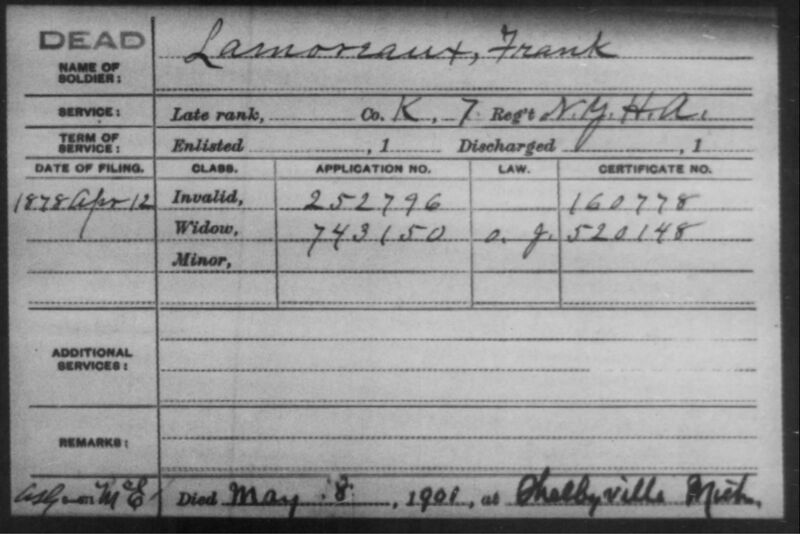 DEAD
NAME OF SOLDIER: Lamoreaux, Frank
SERVICE: Late rank, Co. K, 7 Reg't N.Y.H.A.
TERM OF SERVICE: Enlisted , 1 Discharged , 1
DATE OF FILING. CLASS. APPLICATION NO. LAW. CERTIFICATE NO.
1878 Apr 12 Invalid, 252796 160778
Widow, 743150 o. g. 520148
Minor,
ADDITIONAL SERVICES:
REMARKS:
Died May 8, 1901, at Shelbyville Mich.